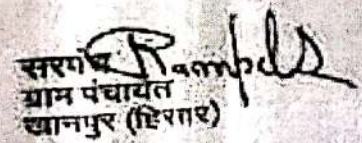 सरपंच Rampal
ग्राम पंचायत
खानपुर (हिसार)